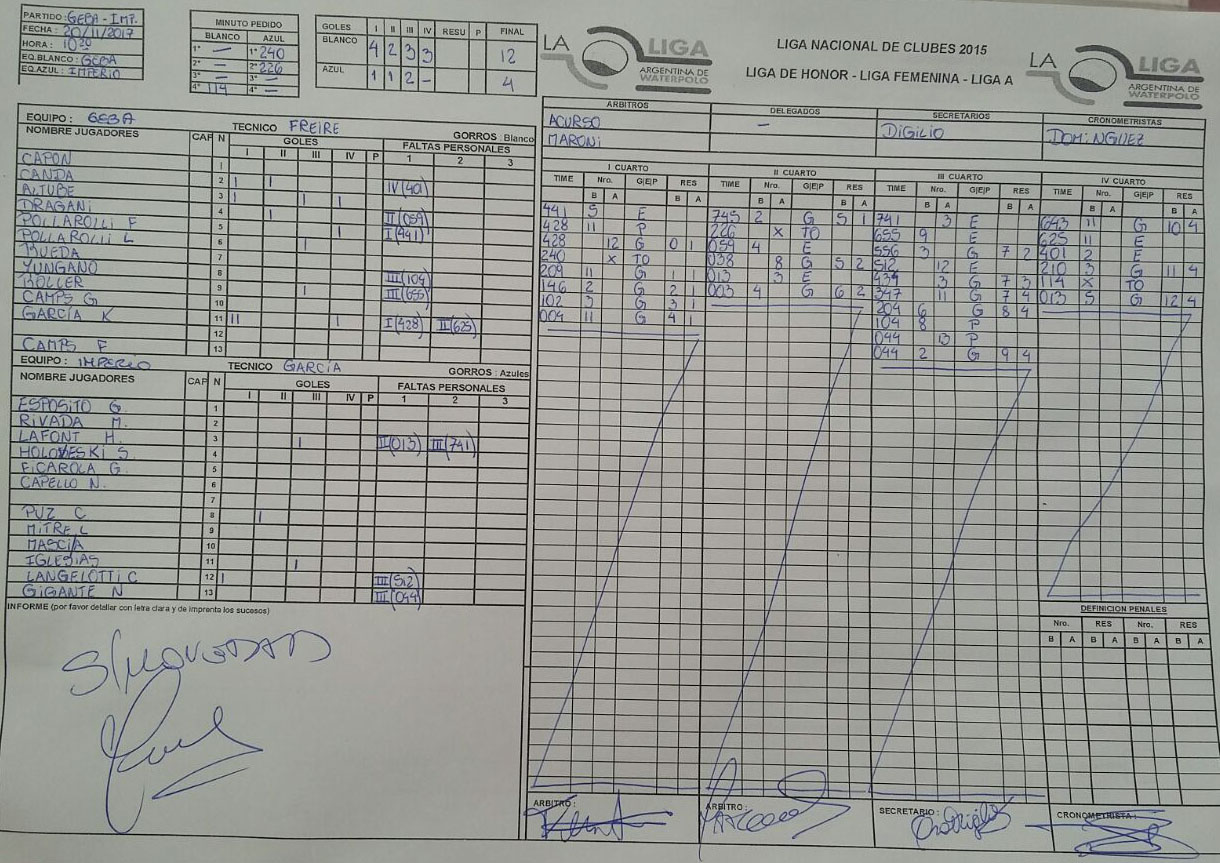 PARTIDO: GEBA - IMP.
FECHA: 20/11/2017
HORA: 1020
EQ.BLANCO: GEBA
EQ.AZUL: IMPERIO
MINUTO PEDIDO
BLANCO AZUL
1° — 1° 240
2° — 2° 226
3° — 3° —
4° 114 4° —
GOLES I II III IV RESU P FINAL
BLANCO 4 2 3 3 12
AZUL 1 1 2 - 4
LA LIGA
ARGENTINA DE
WATERPOLO
LIGA NACIONAL DE CLUBES 2015
LIGA DE HONOR - LIGA FEMENINA - LIGA A
LA LIGA
ARGENTINA DE
WATERPOLO
EQUIPO: GEBA TECNICO FREIRE GORROS: Blanco
NOMBRE JUGADORES CAP N GOLES FALTAS PERSONALES
I II III IV P 1 2 3
CAPON 1
CANDA 2 I I IV(401)
ALTUBE 3 I I I
DRAGANI 4 I II(059)
POLLAROLLI F 5 I I(441)
POLLAROLLI L 6 I
RUEDA 7
YUNGANO 8 III(104)
BOLLER 9 I III(655)
CAMPS G 10
GARCÍA K 11 II I I(428) II(625)
12
CAMPS F 13
EQUIPO: IMPERIO TECNICO GARCÍA GORROS: Azules
NOMBRE JUGADORES CAP N GOLES FALTAS PERSONALES
I II III IV P 1 2 3
ESPOSITO G. 1
RIVADA M. 2
LAFONT H. 3 I II(013) III(741)
HOLOVESKI S. 4
FICAROLA G. 5
CAPELLO N. 6
7
PUZ C 8 I
MITRE L 9
MASCIA 10
IGLESIAS 11 I
LANGELOTTI C 12 I III(512)
GIGANTE N 13 III(044)
INFORME (por favor detallar con letra clara y de imprenta los sucesos)
S/NOVEDAD
ARBITROS DELEGADOS SECRETARIOS CRONOMETRISTAS
ACURSO — DIGILIO DOMINGUEZ
MARONI
I CUARTO
TIME Nro. G|E|P RES
B A B A
441 5 E
428 11 P
428 12 G 0 1
240 X TO
209 11 G 1 1
146 2 G 2 1
102 3 G 3 1
004 11 G 4 1
II CUARTO
TIME Nro. G|E|P RES
B A B A
745 2 G 5 1
226 X TO
059 4 E
038 8 G 5 2
013 3 E
003 4 G 6 2
III CUARTO
TIME Nro. G|E|P RES
B A B A
741 3 E
655 9 E
556 3 G 7 2
512 12 E
434 3 G 7 3
347 11 G 7 4
204 6 G 8 4
104 8 P
044 13 P
044 2 G 9 4
IV CUARTO
TIME Nro. G|E|P RES
B A B A
643 11 G 10 4
625 11 E
401 2 E
210 3 G 11 4
114 X TO
013 5 G 12 4
DEFINICION PENALES
Nro. RES Nro. RES
B A B A B A B A
ARBITRO:
ARBITRO:
SECRETARIO:
CRONOMETRISTA: